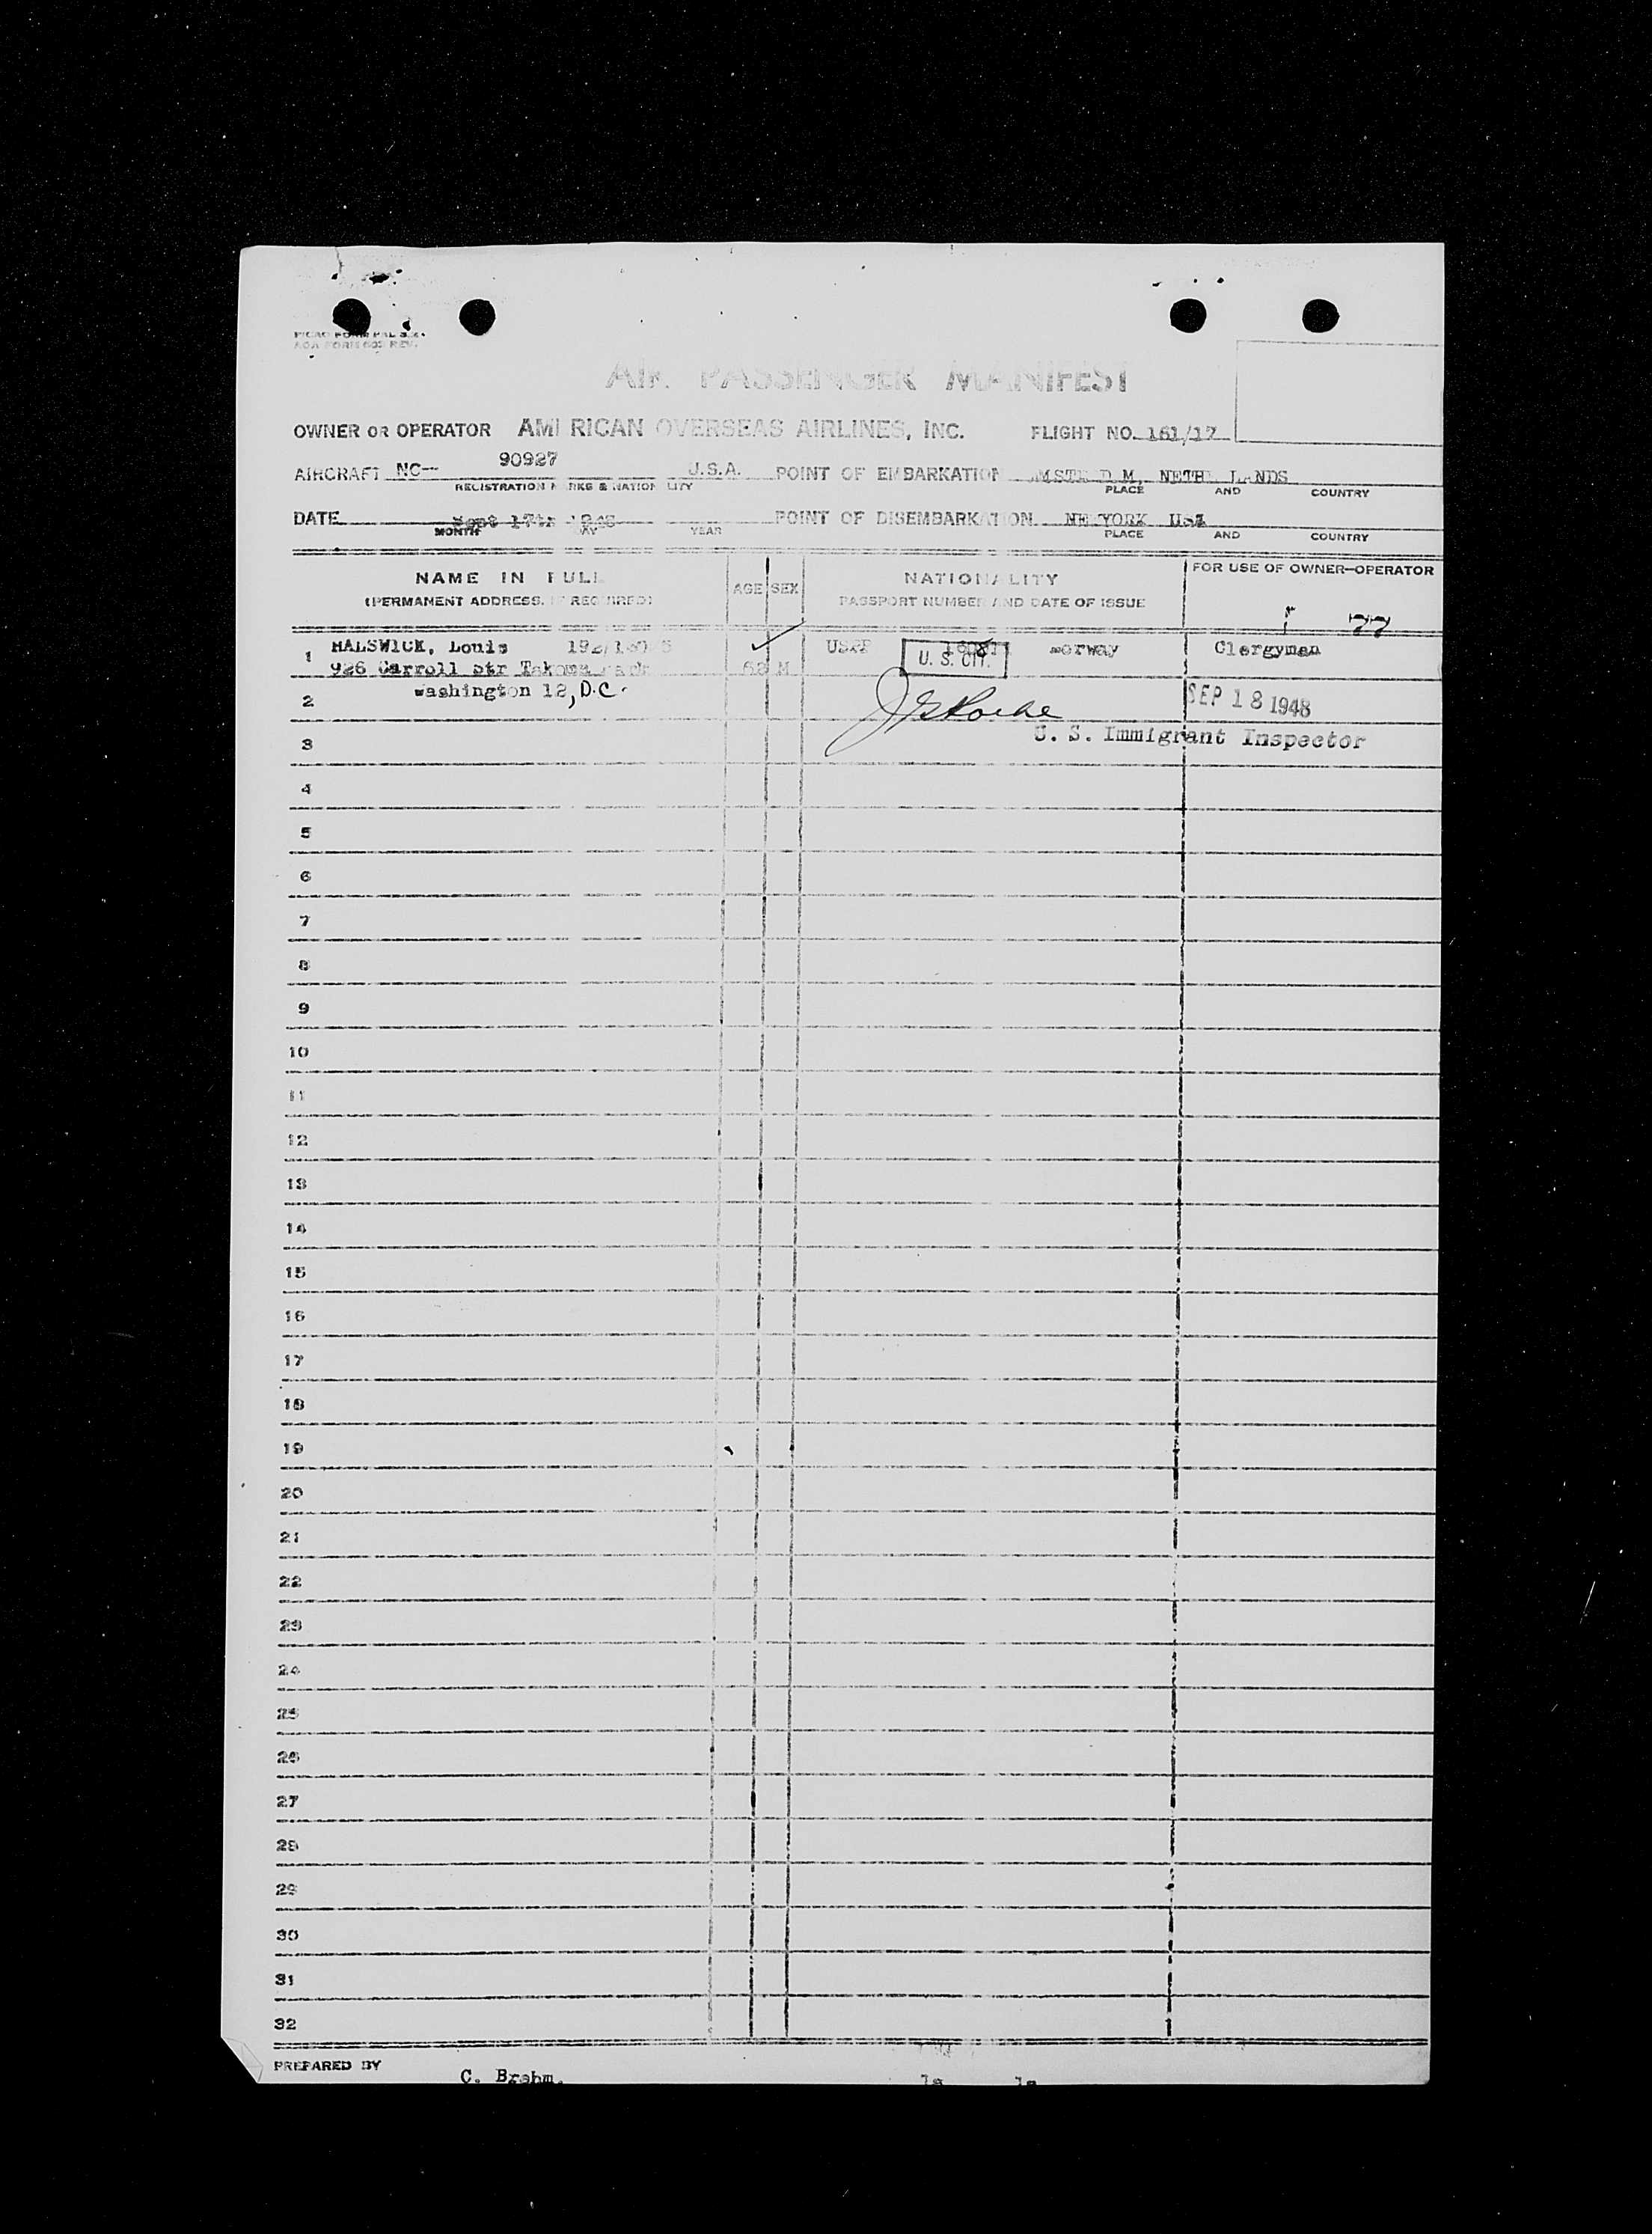 AOA FORM 603 REV.
AIR PASSENGER MANIFEST
OWNER OR OPERATOR AMERICAN OVERSEAS AIRLINES, INC. FLIGHT NO. 161/17
AIRCRAFT NC— 90927 U.S.A. POINT OF EMBARKATION AMSTERDAM, NETHERLANDS
REGISTRATION MARKS & NATIONALITY PLACE AND COUNTRY
DATE Sept 17th 1948 POINT OF DISEMBARKATION NEW YORK USA
MONTH DAY YEAR PLACE AND COUNTRY
NAME IN FULL AGE SEX NATIONALITY FOR USE OF OWNER—OPERATOR
(PERMANENT ADDRESS, IF REQUIRED) PASSPORT NUMBER AND DATE OF ISSUE
77
1 HALSWICK, Louis USPP Norway Clergyman
926 Carroll Str Takoma Park 62 M U. S. CIT.
2 Washington 12, D.C. SEP 18 1948
3 U. S. Immigrant Inspector
4
5
6
7
8
9
10
11
12
13
14
15
16
17
18
19
20
21
22
23
24
25
26
27
28
29
30
31
32
PREPARED BY C. Brahm.